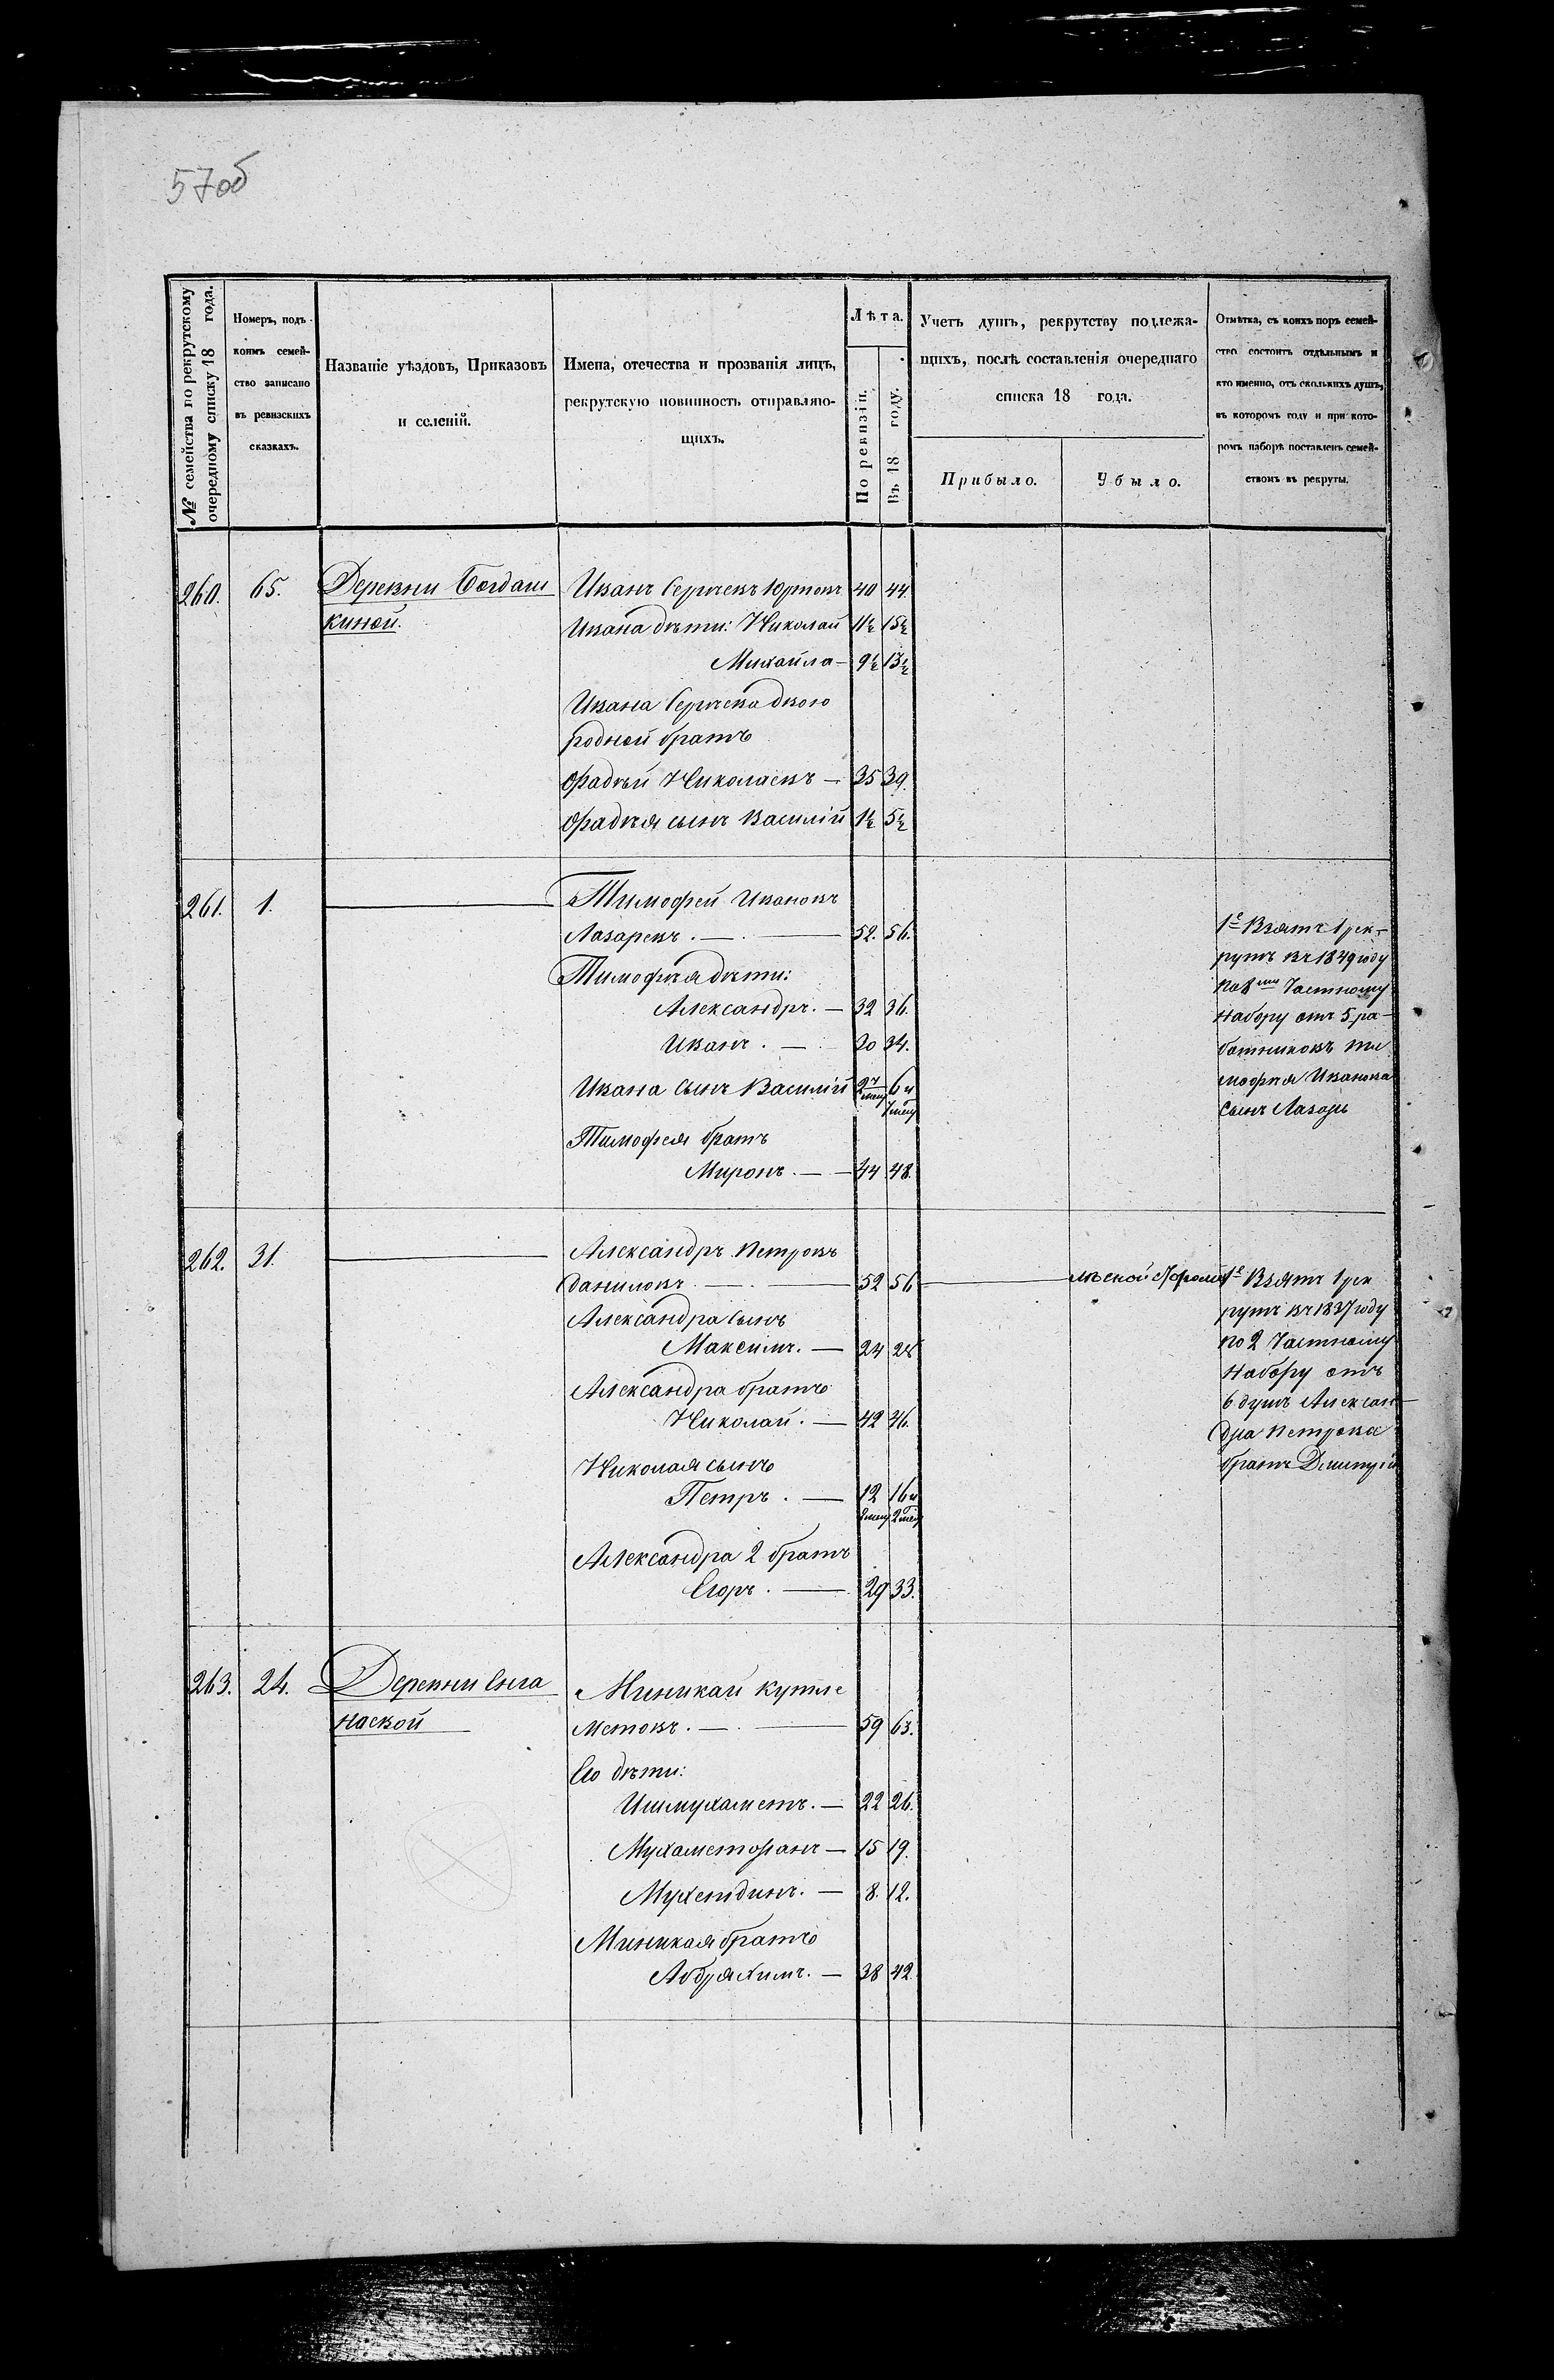 57об
№ семейства по рекрутскому очередному списку 18 года.
Номеръ, подъ коимъ семейство записано въ ревизскихъ сказкахъ.
Названіе уѣздовъ, Приказовъ и селеній.
Имена, отечества и прозванія лицъ, рекрутскую повинность отправляющихъ.
Лѣта.
По ревизіи.
Въ 18 году.
Учетъ душъ, рекрутству подлежащихъ, послѣ составленія очереднаго списка 18 года.
Прибыло.
Убыло.
Отмѣтка, съ коихъ поръ семейство состоитъ отдѣльнымъ и кто именно, отъ сколькихъ душъ, въ которомъ году и при которомъ наборѣ поставленъ семействомъ въ рекруты.
260. 65. Деревни Богдаш Иванъ Сергѣевъ Юртовъ 40 44.
киной. Ивана дѣти: Николай 11½ 15½
Михайла — 9½ 13½
Ивана Сергѣева двою
родной братъ
Фадѣй Николаевъ — 35 39.
Фадѣя сынъ Василій 1½ 5½
261. 1. Тимофей Ивановъ
Лазаревъ. — 52. 56.
Тимофѣя дѣти:
Александръ. — 32 36.
Иванъ. — 30 34.
Ивана сынъ Василій 2 6
Тимофея братъ
Миронъ. — 44 48.
1е Взятъ 1 рек-
рутъ въ 1849 году
по 8 Частному
набору отъ 5 ра-
ботниковъ Ти
мофея Иванова
сынъ Лазарь
262. 31. Александръ Петровъ
Даниловъ. — 52 56
Александра сынъ
Максимъ. — 24 28
Александра братъ
Николай. — 42 46.
Николая сынъ
Петръ. — 12 16
Александра 2 братъ
Егоръ. — 29 33.
1е Взятъ 1 рек
рутъ въ 1837 году
по 2 Частному
набору отъ
6 душъ Алексан-
дра Петрова
братъ Дмитрій
263. 24. Деревни Енга Миникай Кутлe
наевой Метовъ. — 59 63.
Его дѣти:
Ишмухаметъ. — 22 26.
15 19.
8. 12.
Миникая братъ
38 42.